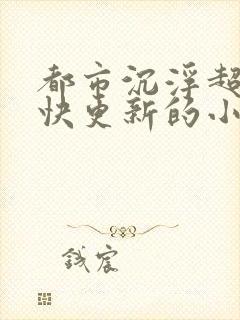 都市沉浮超
快更新的小
钱宸